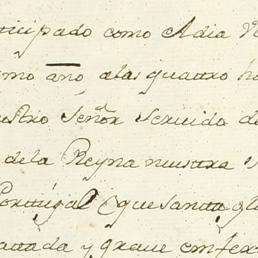 ticipado como A dia Ve
smo año, a las quattro ho
uestro Señor Servido de
de la Reyna nuestra S
Portugal (que santa glo
lattada y grave enfer